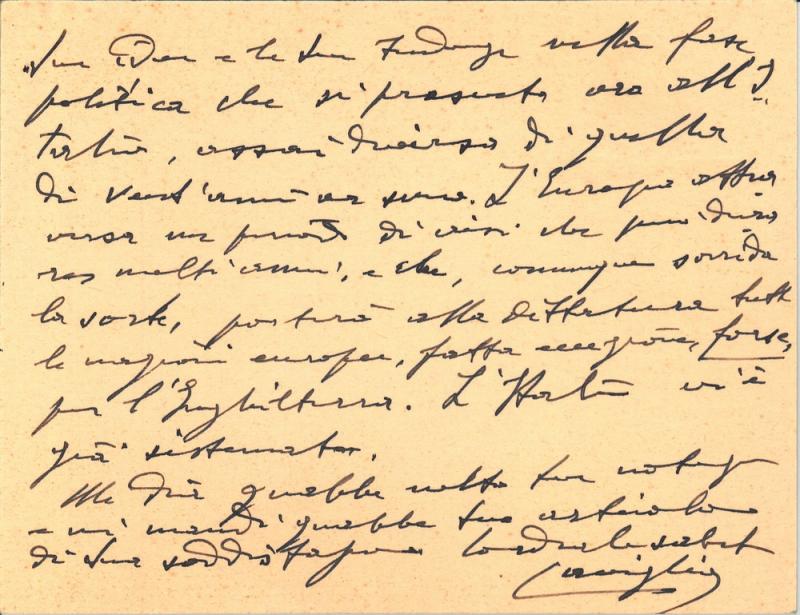 sue idee e le sue tendenze nella fase
politica che si presenta ora all'I-
talia, assai diversa di quella
di vent'anni or sono. L'Europa attra
versa un periodo di crisi che può dura
re molti anni, e che, comunque sorrida
la sorte, porterà alla dittatura tutte
le nazioni europee, fatta eccezione, forse,
per l'Inghilterra. L'Italia vi è
già sistemata.
Mi dia qualche volta sue notizie
e mi mandi qualche suo articolo
di sua soddisfazione. Cordiali saluti
Caviglia